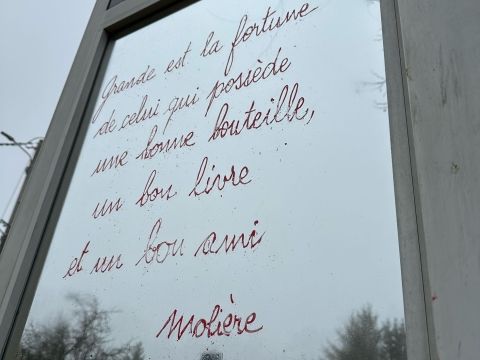 Grande est la fortune
de celui qui possède
une bonne bouteille,
un bon livre
et un bon ami
Molière